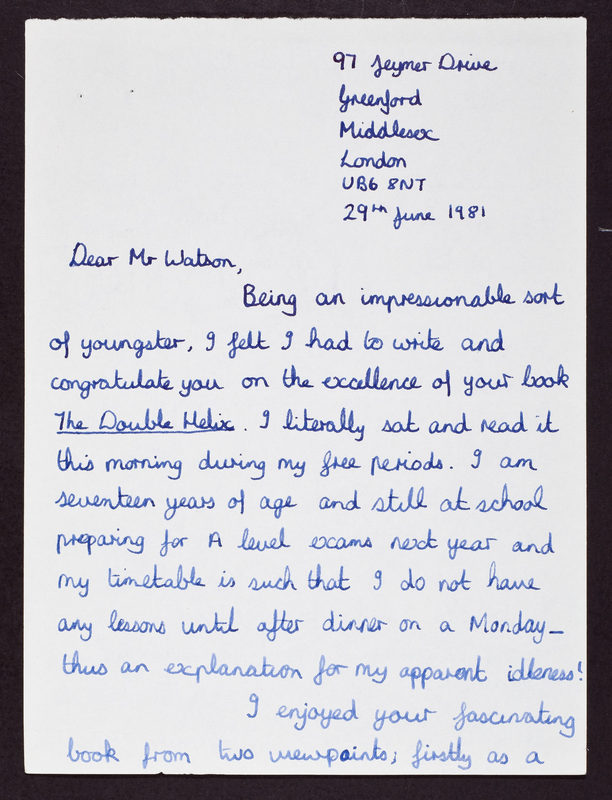 97 Jeymer Drive
Greenford
Middlesex
London
UB6 8NT
29th June 1981
Dear Mr Watson,
Being an impressionable sort
of youngster, I felt I had to write and
congratulate you on the excellence of your book
The Double Helix. I literally sat and read it
this morning during my free periods. I am
seventeen years of age and still at school
preparing for A level exams next year and
my timetable is such that I do not have
any lessons until after dinner on a Monday –
thus an explanation for my apparent idleness!
I enjoyed your fascinating
book from two viewpoints; firstly as a